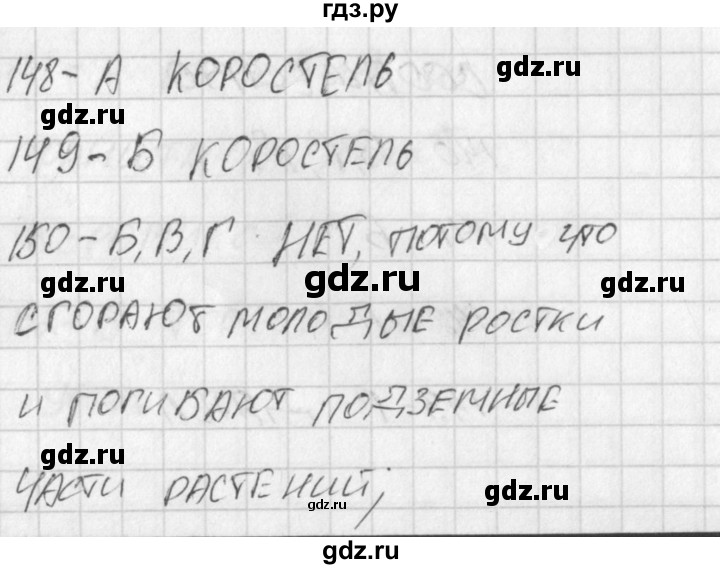 гдз.ру
148-А КОРОСТЕЛЬ
gdz.ru
gdz.ru
149-Б КОРОСТЕЛЬ
150-Б,В,Г. НЕТ, ПОТОМУ ЧТО
gdz.ru gdz.ru gdz.ru
СГОРАЮТ МОЛОДЫЕ РОСТКИ
И ПОГИБАЮТ ПОДЗЕМНЫЕ
gdz.ru
ЧАСТИ РАСТЕНИЙ;
gdz.ru
gdz.ru
gdz.ru